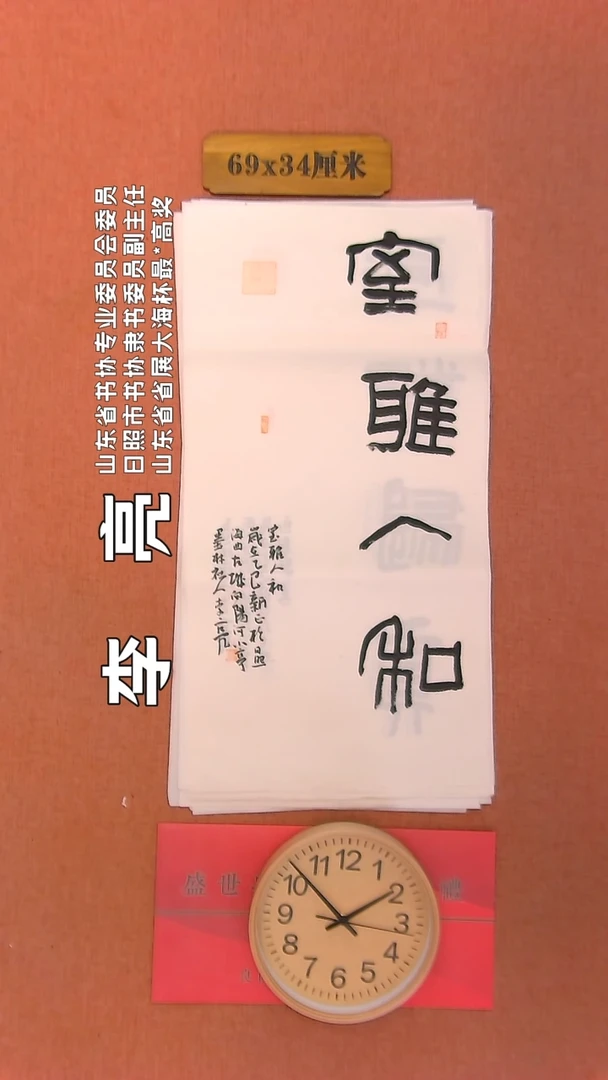 69x34厘米
山东省书协专业委员会委员
日照市书协隶书委员副主任
山东省省展大海杯最*高奖
李亮
室雅人和
室雅人和
岁在乙巳新正于日照
海曲古城向阳河小亭
墨林
盛世
12
1
2
3
4
5
6
7
8
9
10
11